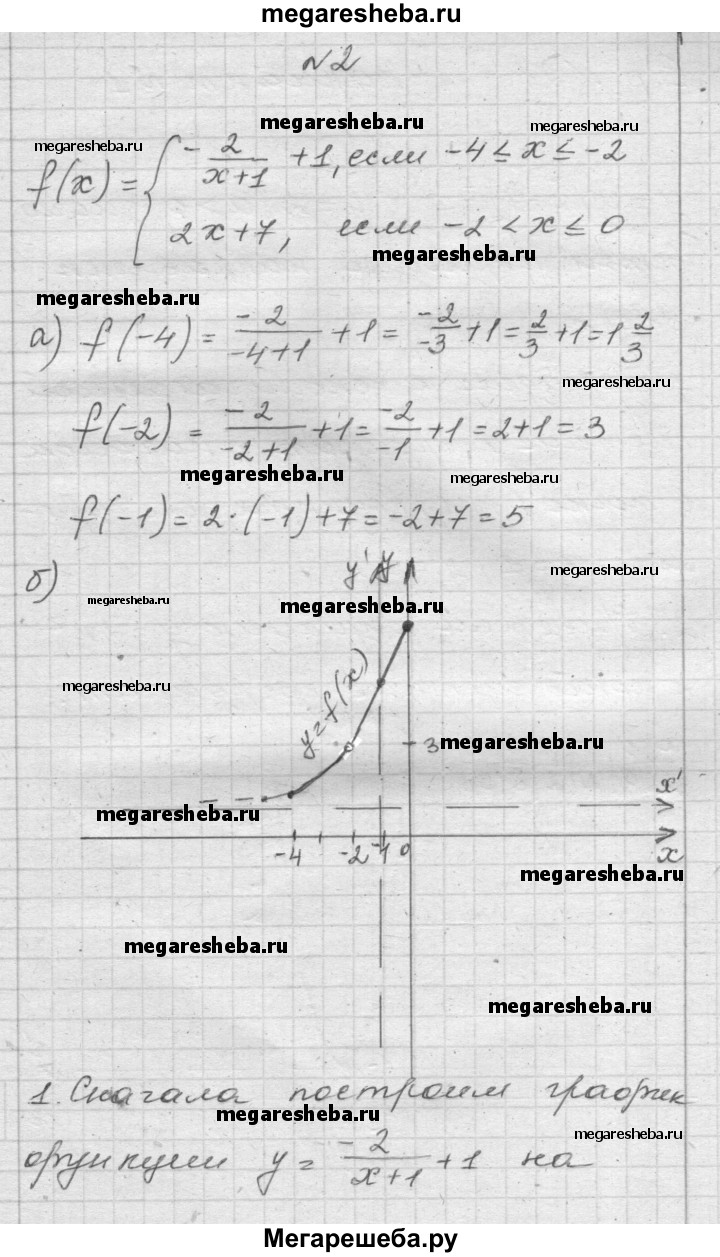 megaresheba.ru
№2
megaresheba.ru
megaresheba.ru
megaresheba.ru
f(x) = { -2/(x+1) +1, если -4 ≤ x ≤ -2
2x+7, если -2 < x ≤ 0
megaresheba.ru
megaresheba.ru
а) f(-4) = -2/(-4+1) +1 = -2/-3 +1 = 2/3 +1 = 1 2/3
megaresheba.ru
f(-2) = -2/(-2+1) +1 = -2/-1 +1 = 2+1 = 3
megaresheba.ru
megaresheba.ru
f(-1) = 2·(-1)+7 = -2+7 = 5
б)
y' y
megaresheba.ru
megaresheba.ru
megaresheba.ru
megaresheba.ru
y=f(x)
3
megaresheba.ru
x'
megaresheba.ru
-4 -2 -1 0 x
megaresheba.ru
megaresheba.ru
megaresheba.ru
1. Сначала построим график
megaresheba.ru
megaresheba.ru
функции y = -2/(x+1) +1 на
Мегарешеба.ру